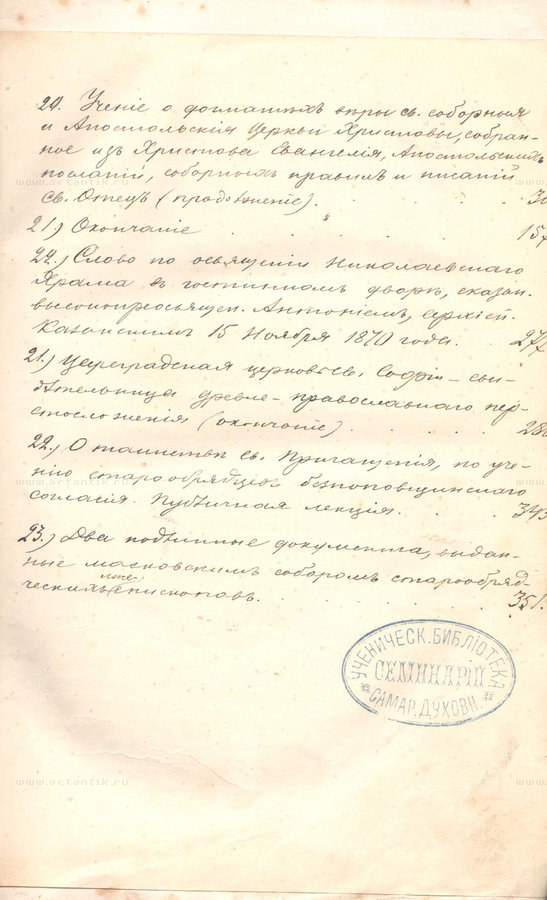 20. Ученіе о догматѣхъ вѣры св. соборныя
и Апостольскія церкви Христовы, собран-
ное изъ Христова Евангелія, Апостольскихъ
посланій, соборныхъ правилъ и писаній
св. Отецъ (продолженіе).
21.) Окончаніе 157
22.) Слово по освященіи Николаевскаго
Храма въ гостинномъ дворѣ, сказан.
высокопреосвящен. Антоніемъ, архіеп.
Казанскимъ 15 Ноября 1870 года. 277
21.) Цареградская церковь св. Софіи – сви-
дѣтельница древле-православнаго пер-
стосложенія (окончаніе)
22.) О таинствѣ св. Причащенія, по уче-
нію старообрядцевъ безпоповщинскаго
согласія. Публичная лекція. 343
23.) Два подлинные документа, выдан-
ные московскимъ соборомъ старообряд-
ческихъ лже-епископовъ. 351.
УЧЕНИЧЕСК. БИБЛІОТЕКА
СЕМИНАРІЙ
САМАР. ДУХОВН.
www.artantik.ru